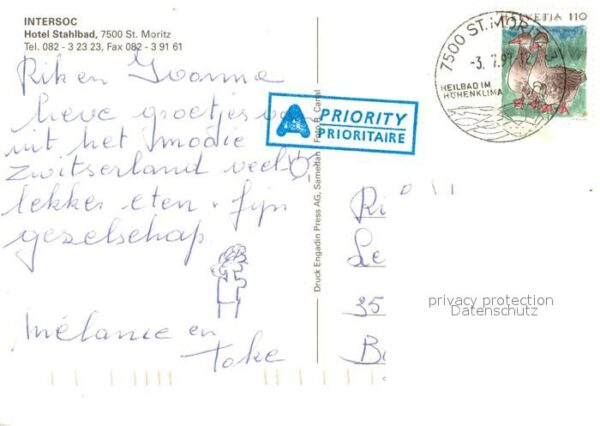 INTERSOC
Hotel Stahlbad, 7500 St. Moritz
Tel. 082 - 3 23 23, Fax 082 - 3 91 61
Rik en Ivonne
lieve groetjes
uit het mooie
Zwitserland veel
lekker eten. fijn
gezelschap.
Mélanie en
Toke
Druck Engadin Press AG, Samedan Foto R. Canal
A PRIORITY
PRIORITAIRE
7500 ST. MORITZ 3
-3. 7. 9
HEILBAD IM
HÖHENKLIMA
HELVETIA 110
Ri
Le
35
privacy protection
Datenschutz